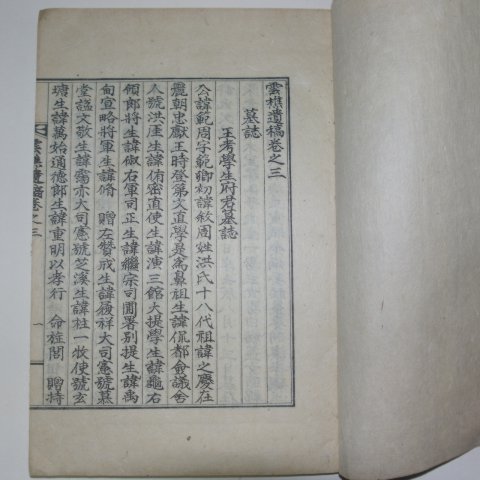 雲樵遺稿卷之三
墓誌
王考學生府君墓誌
公諱範周字範卿初諱敘周姓洪氏十八代祖諱之慶在
麗朝忠獻王時登第文直學是為鼻祖生諱侃都僉議舍
人號洪厓生諱侑密直使生諱演三館大提學生諱龜右
侍郎將生諱俶右軍司正生諱繼宗司圃署別提生諱禹
甸宣略將軍生諱脩 贈左贊成生諱履祥大司憲號慕
堂謚文敬生諱霶亦大司憲號芝溪生諱柱一牧使號玄
塘生諱萬始通德郎生諱重明以孝行 命旌閭 贈持
雲樵遺稿卷之三
一